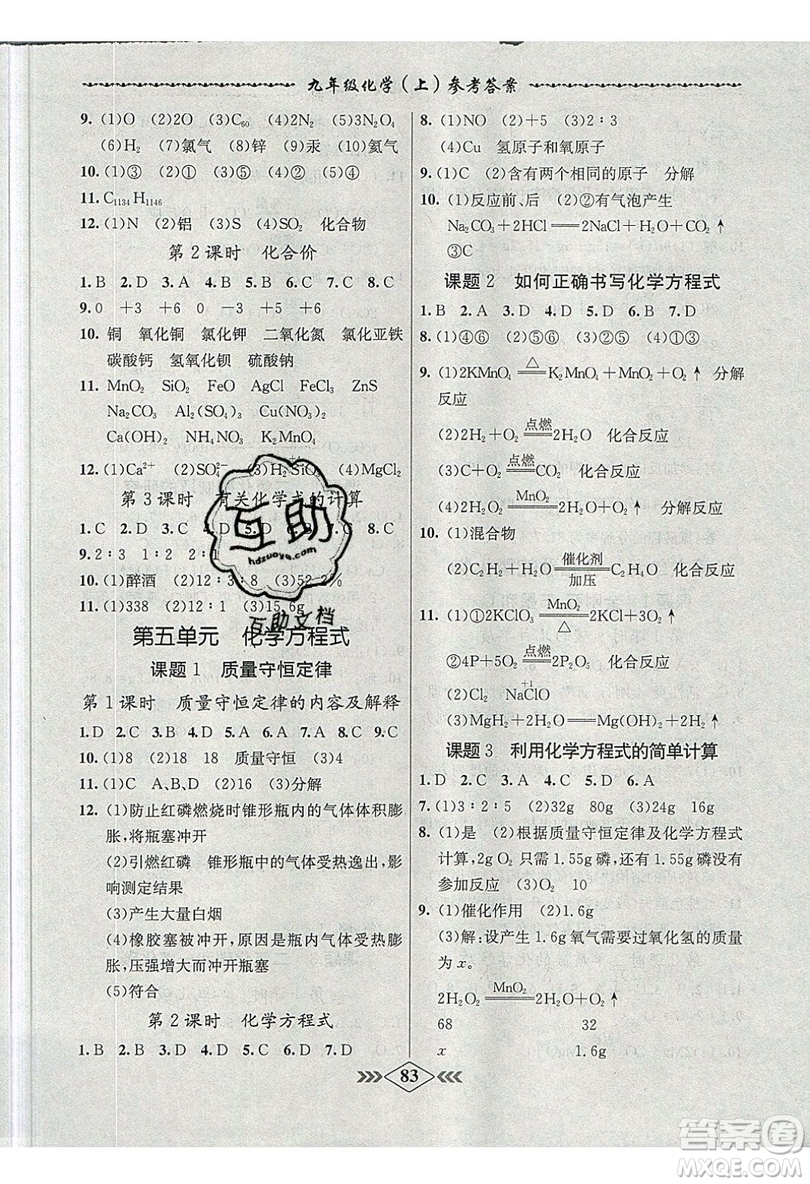 九年级化学(上)参考答案
9. (1)O (2)2O (3)C₆₀ (4)2N₂ (5)3N₂O₄
(6)H₂ (7)氯气 (8)锌 (9)汞 (10)氦气
10. (1)③ (2)① (3)② (4)⑤ (5)④
11. C₁₁₃₄H₁₁₄₆
12. (1)N (2)铝 (3)S (4)SO₂ 化合物
第2课时 化合价
1. B 2. D 3. A 4. B 5. B 6. C 7. C 8. D
9. 0 +3 −3 0 −3 +5
10. 铜 氧化铜 氯化钾 二氧化氮 氯化亚铁
碳酸钙 氢氧化钡 硫酸钠
11. MnO₂ SiO₂ FeO AgCl FeCl₃ ZnS
Na₂CO₃ Al₂(SO₄)₃ Mg(NO₃)₂
Ca(OH)₂ NH₄NO₃ K₂MnO₄
12. (1)Ca²⁺ (2)SO₄²⁻ (3)H₂SiO₃ (4)MgCl₂
第3课时 有关化学式的计算
1. C 2. D 3. D 4. C 5. D 6. A 7. D 8. C
9. 2∶3 1∶2 2∶1
10. (1)醉酒 (2)12∶3∶8 (3)52.2%
11. (1)338 (2)10∶1 (3)15.6g
第五单元 化学方程式
课题1 质量守恒定律
第1课时 质量守恒定律的内容及解释
1. D 2. B 3. D 4. D 5. A 6. A 7. B 8. C 9. C
10. (1)18 (2)18 18 质量守恒 (3)4
11. (1)C A、B、D (2)16 (3)分解
12. (1)防止红磷燃烧时锥形瓶内的气体体积膨
胀,将瓶塞冲开
(2)引燃红磷 锥形瓶中的气体受热逸出,影
响测定结果
(3)产生大量白烟
(4)橡胶塞被冲开,原因是瓶内气体受热膨
胀,压强增大而冲开瓶塞
(5)符合
第2课时 化学方程式
1. B 2. D 3. A 4. B 5. C 6. C 7. B
8. (1)NO (2)+5 (3)2∶3
(4)Cu 氢原子和氧原子
9. (1)C (2)含有两个相同的原子 分解
10. (1)反应前、后 (2)②有气泡产生
Na₂CO₃+2HCl══2NaCl+H₂O+CO₂↑
③C
课题2 如何正确书写化学方程式
1. B 2. A 3. D 4. D 5. B 6. B 7. D
8. (1)④⑥ (2)②⑤⑥ (3)①
9. (1)2KMnO₄ =△= K₂MnO₄+MnO₂+O₂↑ 分解
反应
(2)2H₂+O₂ =点燃= 2H₂O 化合反应
(3)C+O₂ =点燃= CO₂ 化合反应
10. (1)混合物
(2)C₂H₄+H₂O =催化剂/加压= C₂H₆O
11. (1)①2KClO₃ =MnO₂/△= 2KCl+3O₂↑
②4P+5O₂ =点燃= 2P₂O₅
(2)Cl₂ NaC⁺¹lO
(3)MgH₂+2H₂O══Mg(OH)₂+2H₂↑
课题3 利用化学方程式的简单计算
1. D 2. C 3. A 4. D 5. A 6. A
7. (1)3∶2∶5 (2)32g 80g (3)24g 16g
8. (1)是 (2)根据质量守恒定律及化学方程式
计算,2g O₂ 只需 1.55g 磷,有 1.55g 磷没有
参加反应 (3)O₂ 10
9. (1)催化作用 (2)1.6g
(3)解:设产生 1.6g 氧气需要过氧化氢的质量
为 x。
2H₂O₂ =MnO₂= 2H₂O+O₂↑
68 32
x 1.6g
83
互助
hdzuoye.com
互助文档
答案圈
MXQE.COM